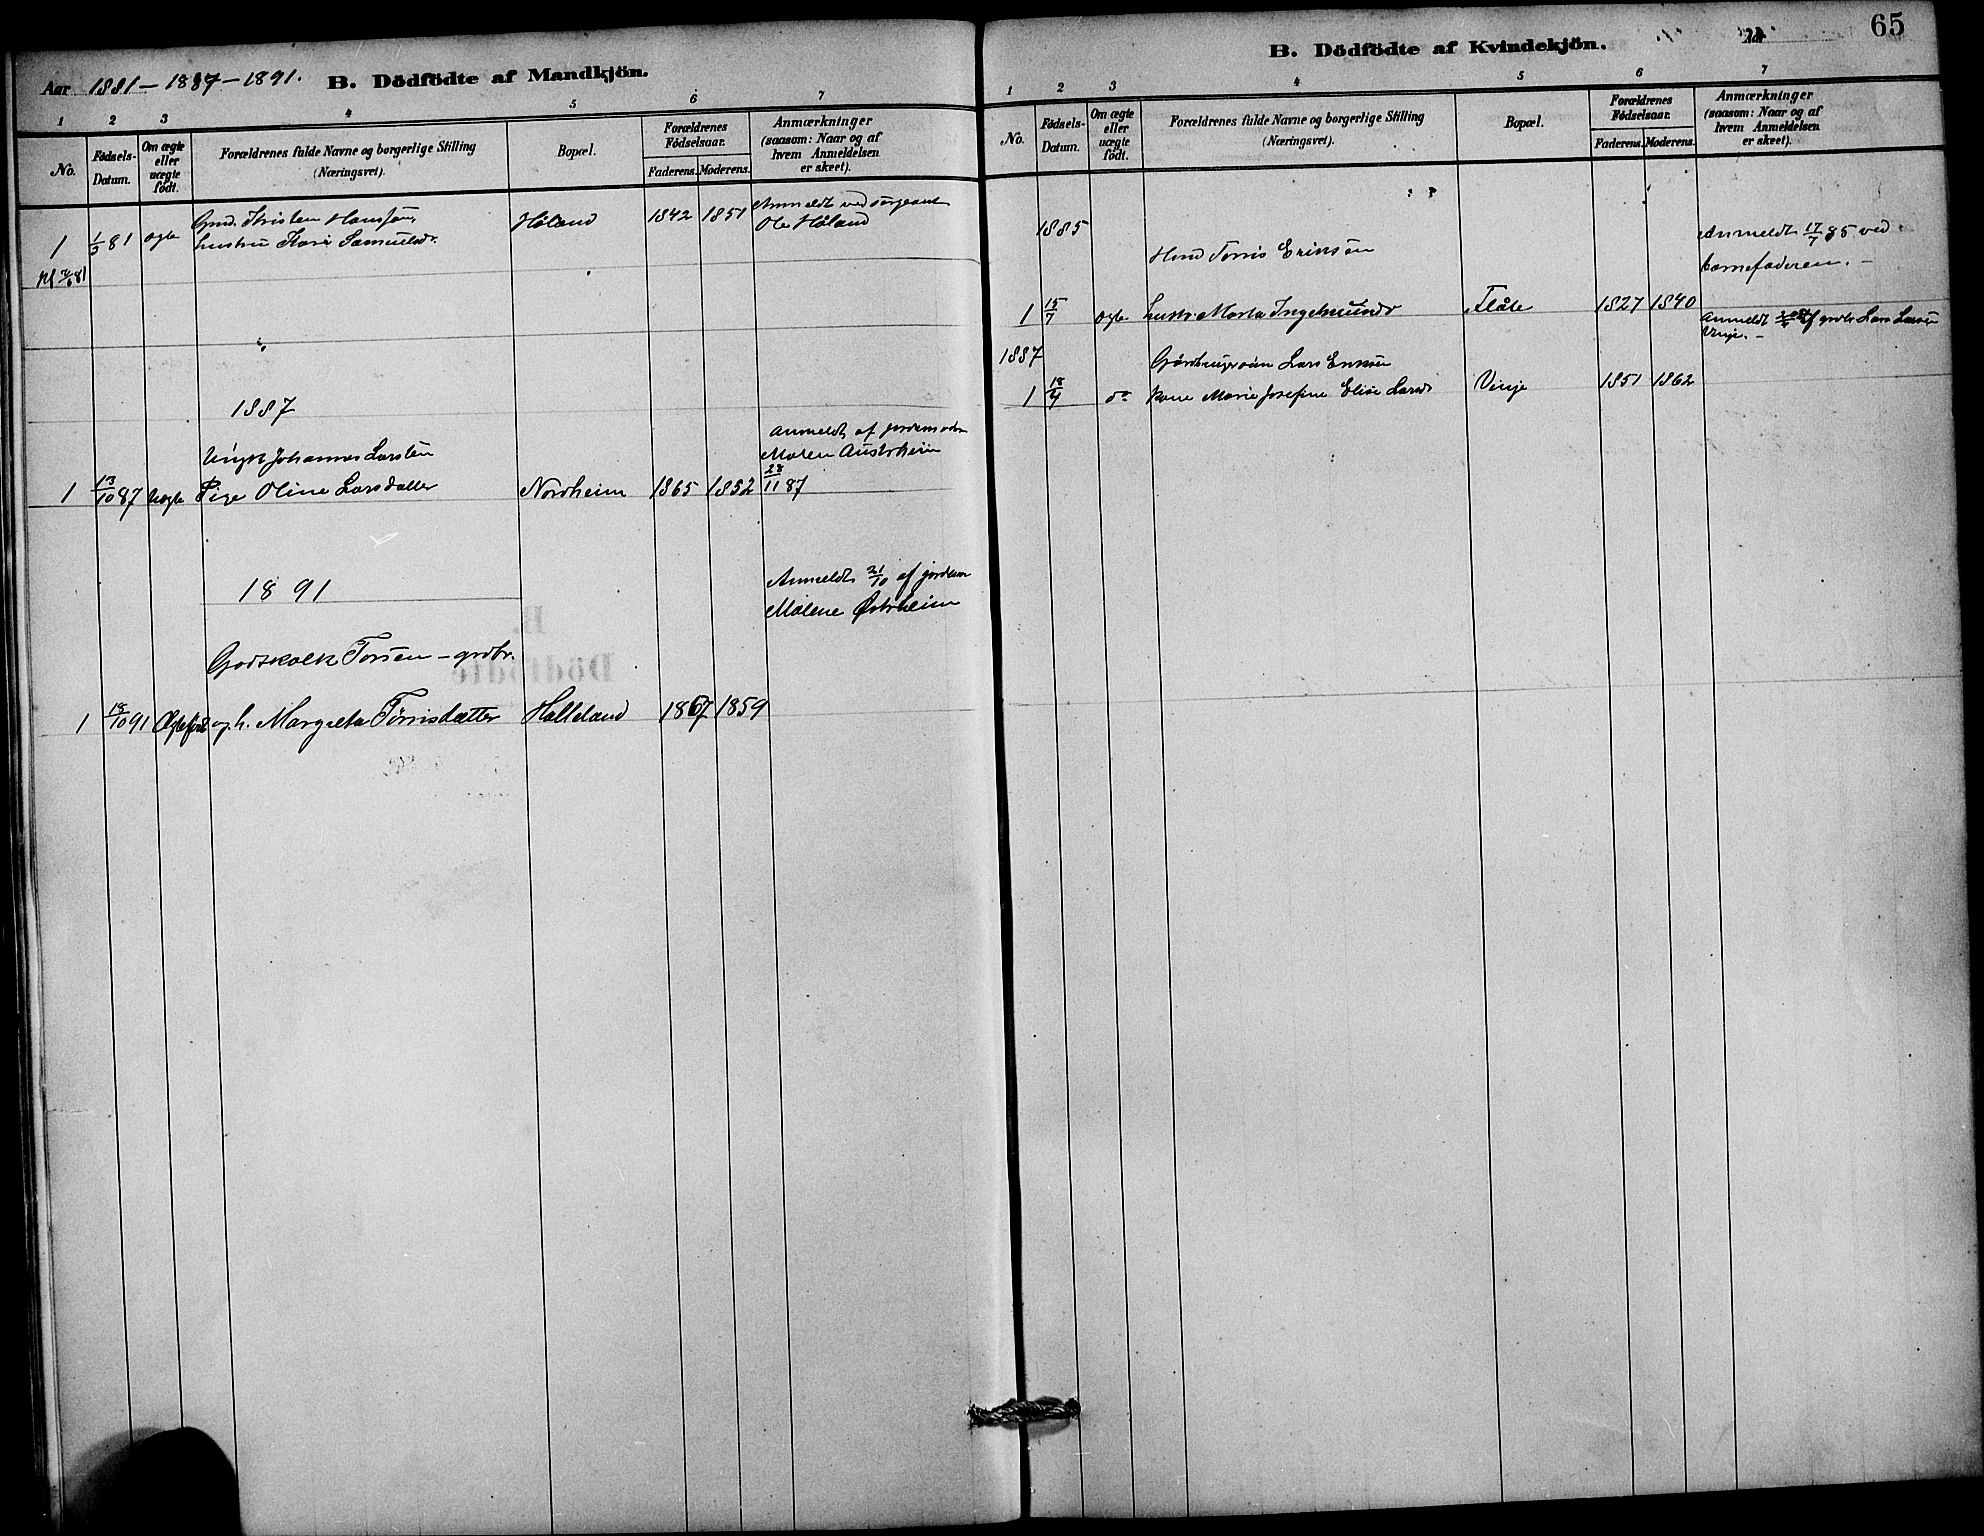 65
Aar 1881 - 1887 - 1891. B. Dödfödte af Mandkjön.
1 2 3 4 5 6 7
No.
Födsels-Datum.
Om ægte eller uægte födt.
Forældrenes fulde Navne og borgerlige Stilling (Næringsvei).
Bopæl.
Forældrenes Födselsaar.
Faderens. Moderens.
Anmærkninger (saasom: Naar og af hvem Anmeldelsen er skeet).
Høland 1842 1851 Anmeldt ved
1 81 ægte hustru Samuelsdr. Ole Høland
1887
Johannes Larsen Anmeldt af jordemoder
Malen Austrheim
1 13/10 87 Uægte Pige Oline Larsdatter Nordheim 1865 1852 28/11 87
1891
Anmeldt 21/10 af jordem
Malene Østrheim
Godskalk Torsen - grdbr.
1 18/10 91 Ægtefødt og h. Margreta Tørrisdatter Halleland 1867 1859
B. Dödfödte af Kvindekjön.
1 2 3 4 5 6 7
No.
Födsels-Datum.
Om ægte eller uægte födt.
Forældrenes fulde Navne og borgerlige Stilling (Næringsvei).
Bopæl.
Forældrenes Födselsaar.
Faderens. Moderens.
Anmærkninger (saasom: Naar og af hvem Anmeldelsen er skeet).
1885 Anmeldt 17/7 85 ved
Hmd Torris Eriksen barnefaderen. -
1 15/7 ægte hustr. Marta Ingelmundr Flåte 1827 1840
Anmeldt af grdbr Lars Larsen
Vinje. -
1887 Lars Eriksen
1 18/4 do kone Marie Josefine Elise Larsdr Vinje 1851 1862